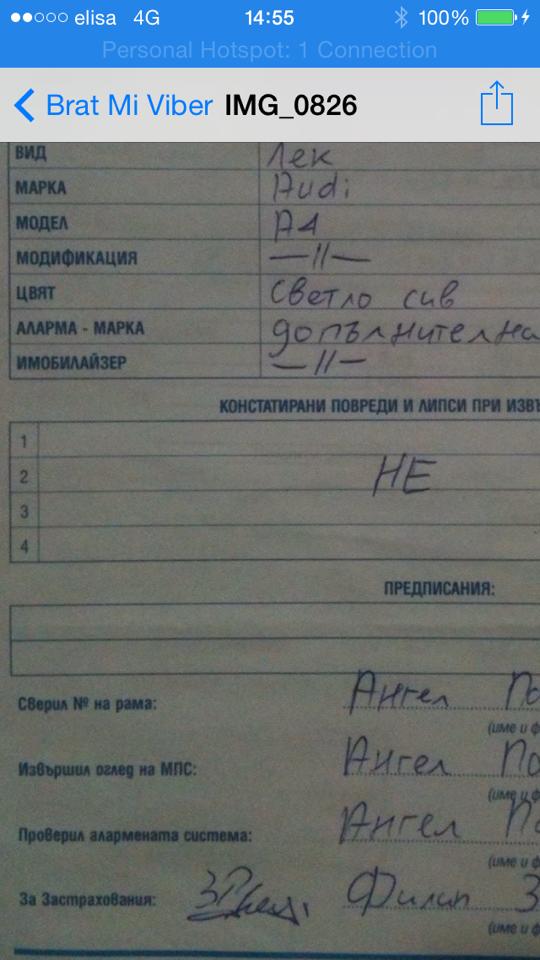 elisa 4G 14:55 100%
Personal Hotspot: 1 Connection
Brat Mi Viber IMG_0826
ВИД Лек
МАРКА Audi
МОДЕЛ A4
МОДИФИКАЦИЯ —//—
ЦВЯТ Светло сив
АЛАРМА - МАРКА допълнителна
ИМОБИЛАЙЗЕР —//—
КОНСТАТИРАНИ ПОВРЕДИ И ЛИПСИ ПРИ ИЗВЪ
1
2 НЕ
3
4
ПРЕДПИСАНИЯ:
Сверил № на рама: Ангел По
(име и ф
Извършил оглед на МПС: Ангел По
(име и ф
Проверил алармената система: Ангел По
(име и ф
За Застрахования: Филип З
(име и ф